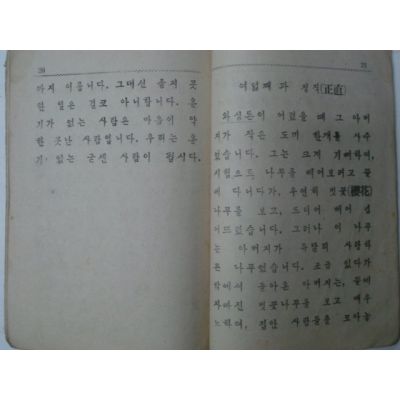 20
까지 이롭니다. 그대신 옳지 못
한 일은 결코 아니합니다. 용
기가 없는 사람은 마음이 약
한 못난 사람입니다. 우리는 용
기 있는 굳센 사람이 됩시다.
21
여덟째 과 정직[正直]
와싱톤이 어렸을 때 그 아버
지가 작은 도끼 한개를 사주
었습니다. 그는 크게 기뻐하며,
시험으로 나무를 베어보려고 뜰
에 다니다가, 우연히 벗꽃[櫻花]
나무를 보고, 드디어 베어 넘
어뜨렸습니다. 그러나 이 나무
는 아버지가 유달리 사랑하
든 나무였습니다. 조금 있다가
밖에서 돌아온 아버지는, 뜰에
자빠진 벗꽃나무를 보고 매우
노하여, 집안 사람들을 모아놓